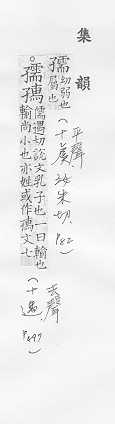 集韻
孺 幼弱也
屬也
平聲
(十虞 汝朱切 P82)
孺𡦗 儒遇切說文乳子也一曰輸也
輸尚小也亦姓或作𡦗文七
去聲
(十遇 P497)